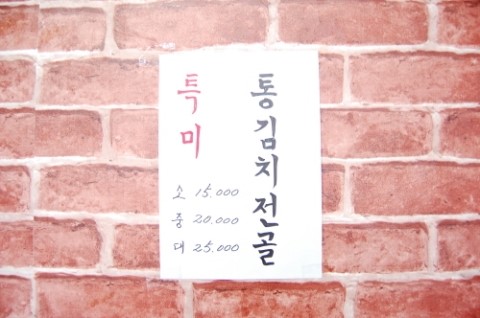 통김치전골
특미
소 15.000
중 20.000
대 25.000